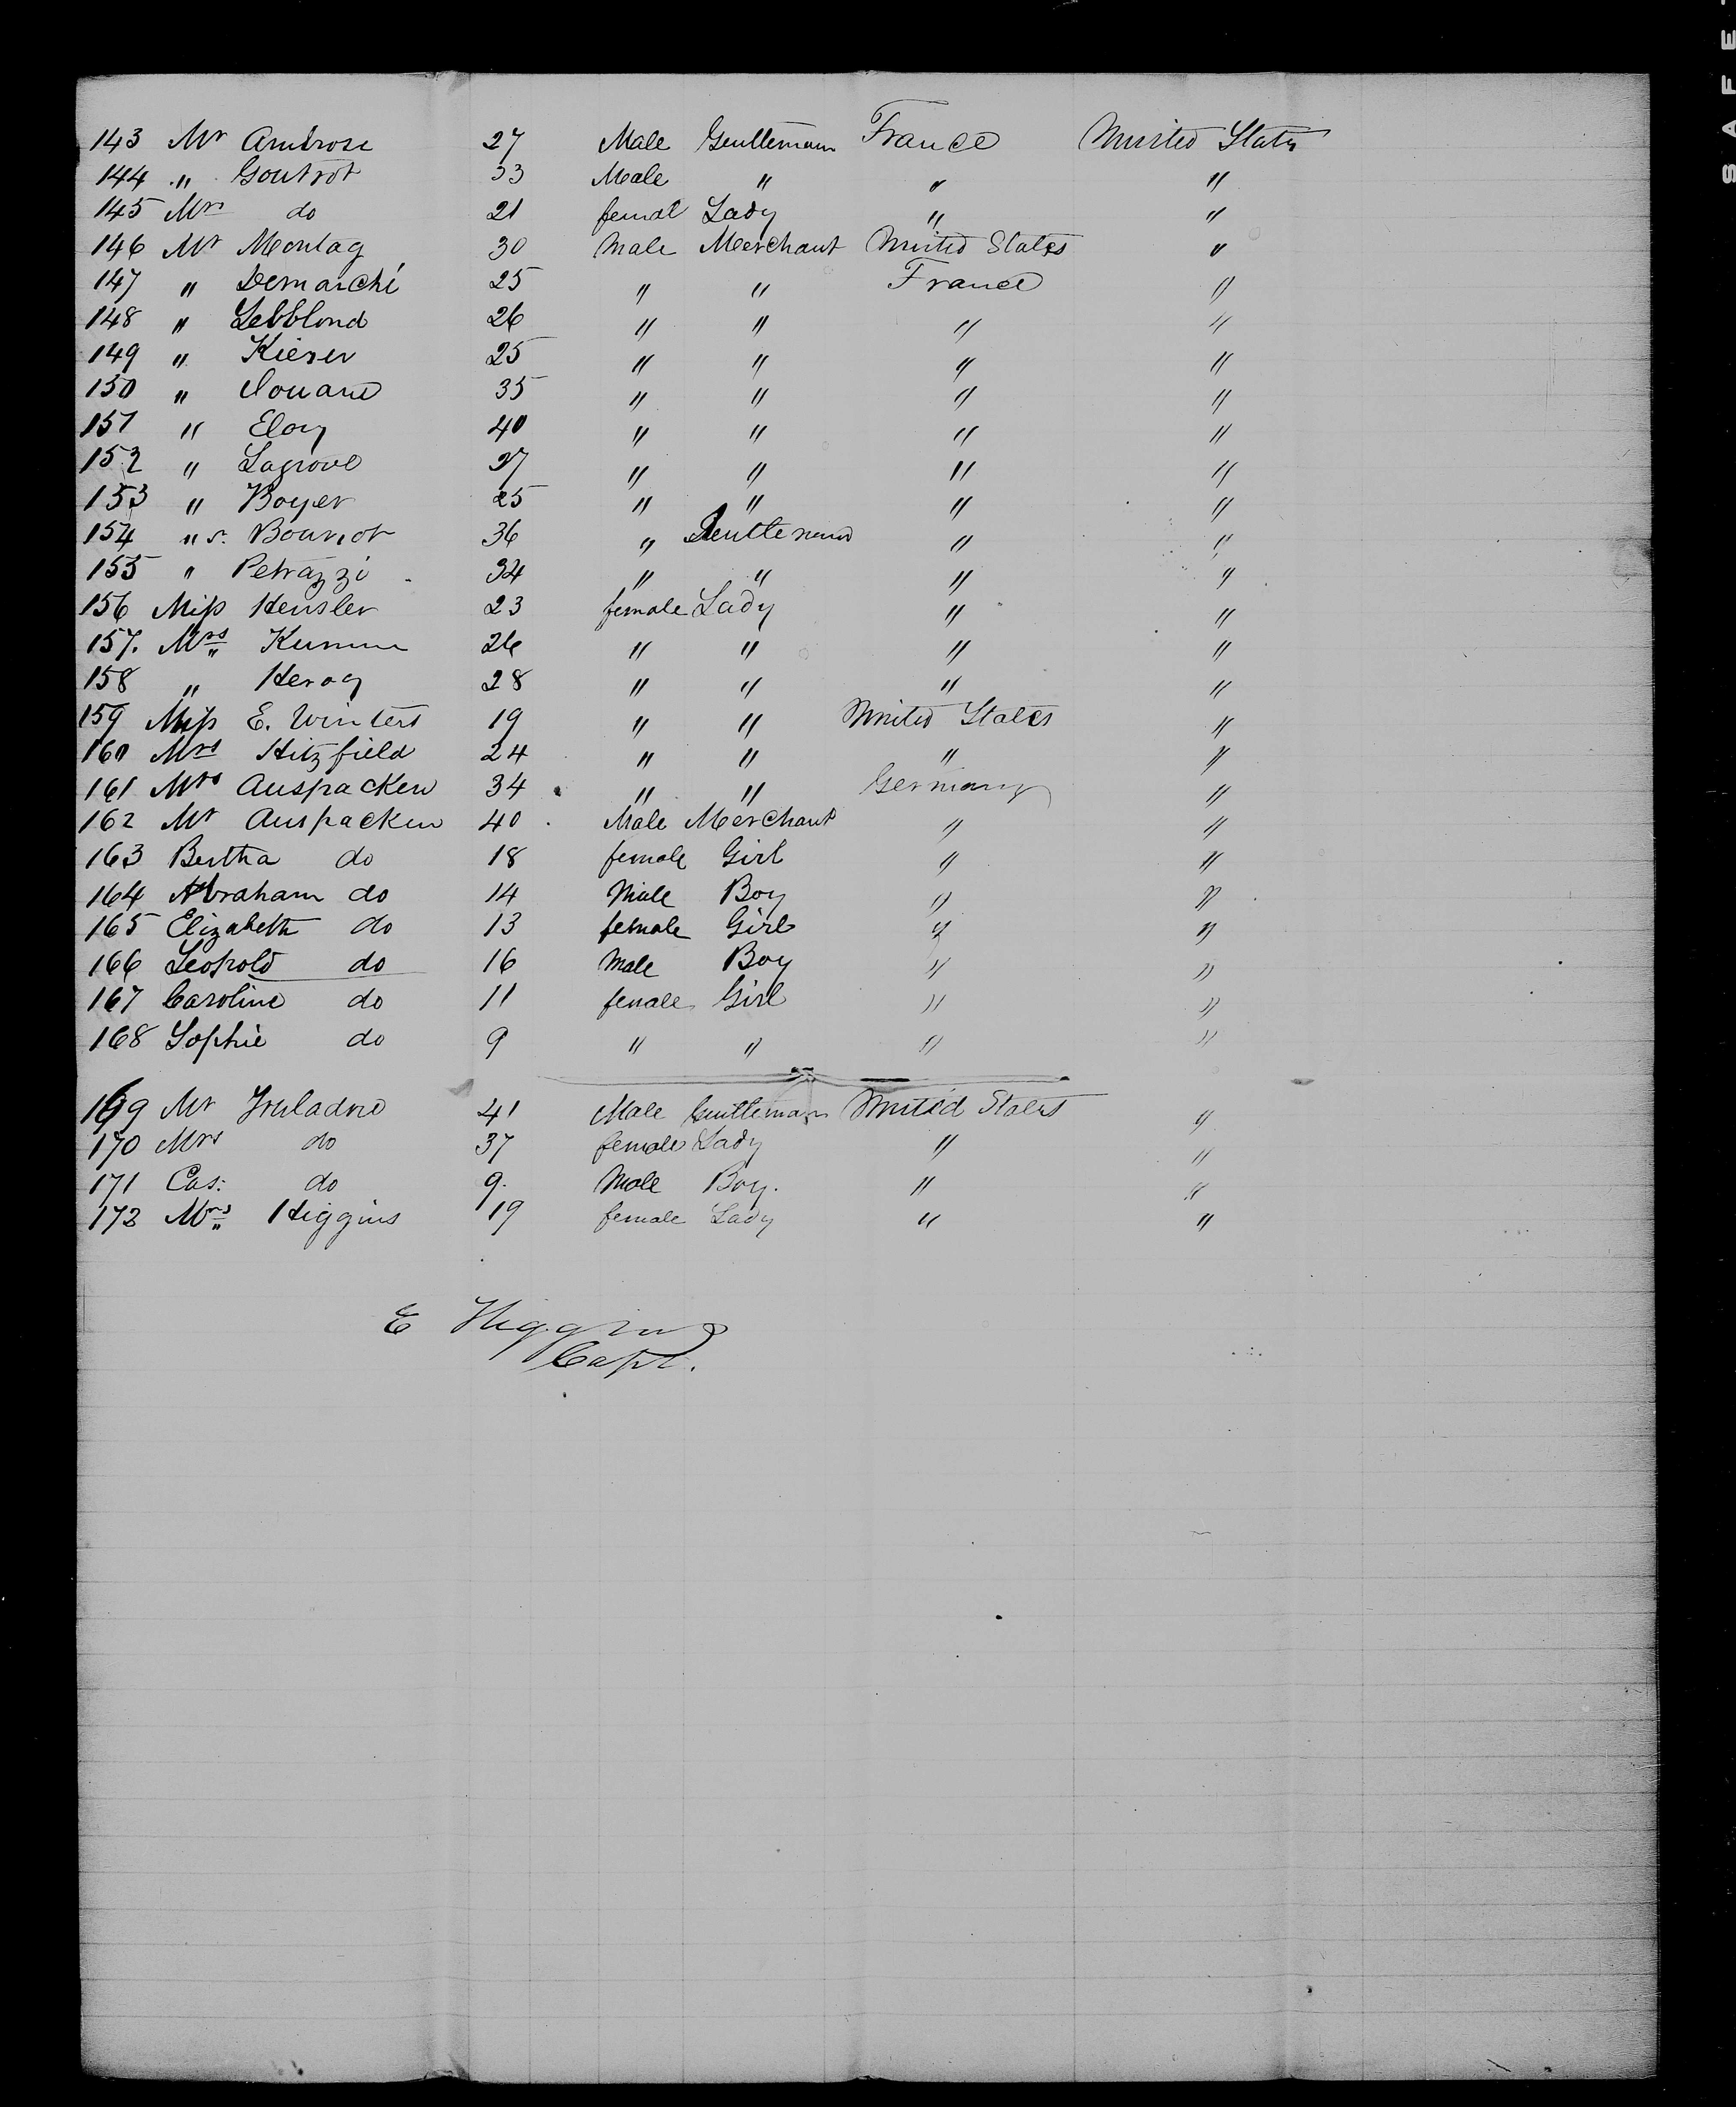 SAFE
143 Mr Ambrose 27 Male Gentleman France United States
144 " Goutrot 33 Male " " "
145 Mrs do 21 femal Lady " "
146 Mr Montag 30 Male Merchant United States "
147 " Demarchi 25 " " France "
148 " Lebblond 26 " " " "
149 " Kieser 25 " " " "
150 " 35 " " " "
151 " Eloy 40 " " " "
152 " Lagrove 27 " " " "
153 " Boyer 25 " " " "
154 " 36 " Gentleman " "
155 " Petrazzi 34 " " " "
156 Miss Hensler 23 female Lady " "
157. Mrs Kumm 26 " " " "
158 " Herog 28 " " " "
159 Miss E. Winters 19 " " United States "
160 Mrs Hitzfield 24 " " " "
161 Mrs Auspacken 34 " " Germany "
162 Mr Auspacken 40 Male Merchant " "
163 Bertha do 18 female Girl " "
164 Abraham do 14 Male Boy " "
165 Elizabeth do 13 female Girl " "
166 Leopold do 16 Male Boy " "
167 Caroline do 11 female Girl " "
168 Sophie do 9 " " " "
169 Mr 41 Male Gentleman United States "
170 Mrs do 37 female Lady " "
171 Cas: do 9. Male Boy. " "
172 Mrs Higgins 19 female Lady " "
E Higgins
Capt.